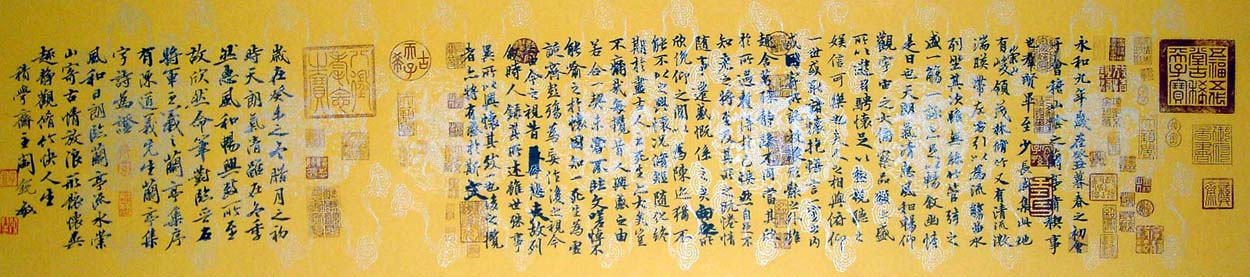 五福五代堂古稀天子寶
永和九年歲在癸丑暮春之初會
于會稽山陰之蘭亭脩禊事
也羣賢畢至少長咸集此地
有崇山峻領茂林脩竹又有清流激
湍暎帶左右引以為流觴曲水
列坐其次雖無絲竹管弦之
盛一觴一詠亦足以暢叙幽情
是日也天朗氣清惠風和暢仰
觀宇宙之大俯察品類之盛
所以遊目騁懷足以極視聽之
娛信可樂也夫人之相與俯仰
一世或取諸懷抱悟言一室之內
或因寄所託放浪形骸之外雖
趣舍萬殊靜躁不同當其欣
於所遇暫得於己快然自足不
知老之將至及其所之既惓情
隨事遷感慨係之矣向之所
欣俛仰之閒以為陳迹猶不
能不以之興懷況脩短隨化終
期於盡古人云死生亦大矣豈
不痛哉每攬昔人興感之由
若合一契未嘗不臨文嗟悼不
能喻之於懷固知一死生為虛
誕齊彭殤為妄作後之視今
亦由今之視昔悲夫故列
敘時人錄其所述雖世殊事
異所以興懷其致一也後之攬
者亦將有感於斯文
古希天子
八徵耄念之寶
歲在癸未之冬臘月之初
時天朗氣清雖在冬季
然惠風和暢興致所至
故欣然命筆對臨晉右
將軍王羲之蘭亭集序
有陳道義先生蘭亭集
字詩為證
風和日朗臨蘭亭流水崇
山寄古情放浪形骸懷異
趣靜觀脩竹快人生
積學齋主閻銳敏